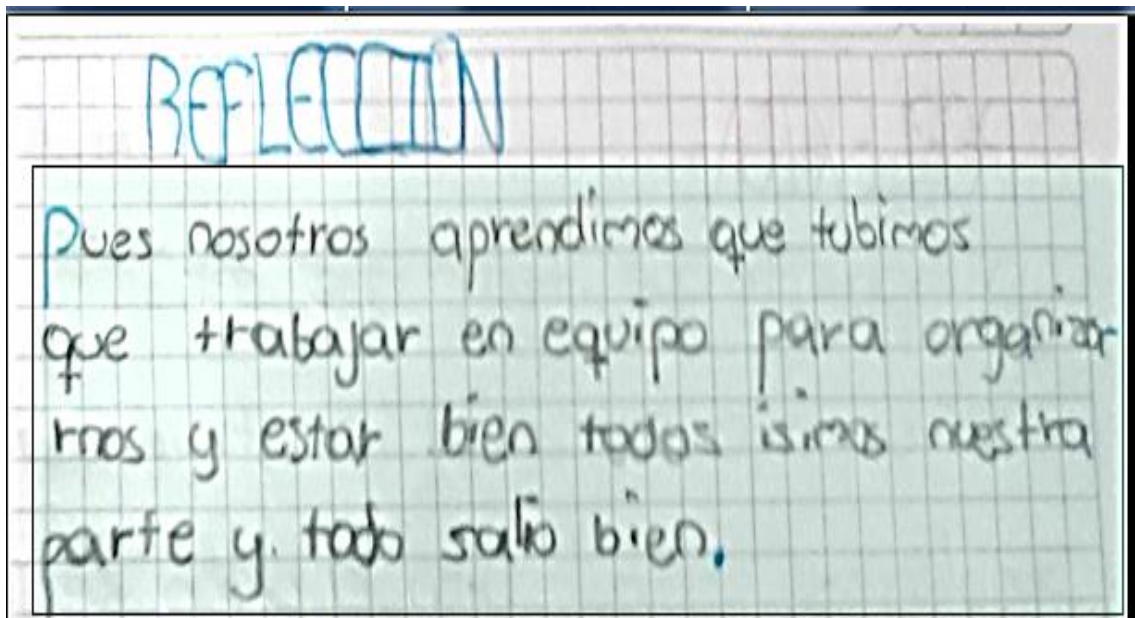 REFLECCIIN
Pues nosotros aprendimos que tubimos
que trabajar en equipo para organizar
rnos y estar bien todos isimos nuestra
parte y. todo salio bien.